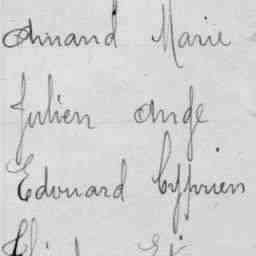 Armand Marie
Julien Ange
Edouard Cyprien